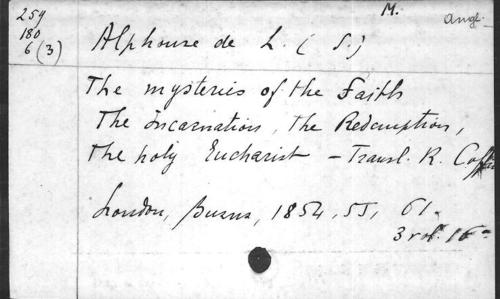 259 M. angl.
180
6 (3) Alphonse de L. (S.)
The mysteries of the Faith
The Incarnation, the Redemption,
the holy Eucharist - Transl. R. Coffin
London, Burns, 1854, 55, 61.
3 vol. 16°